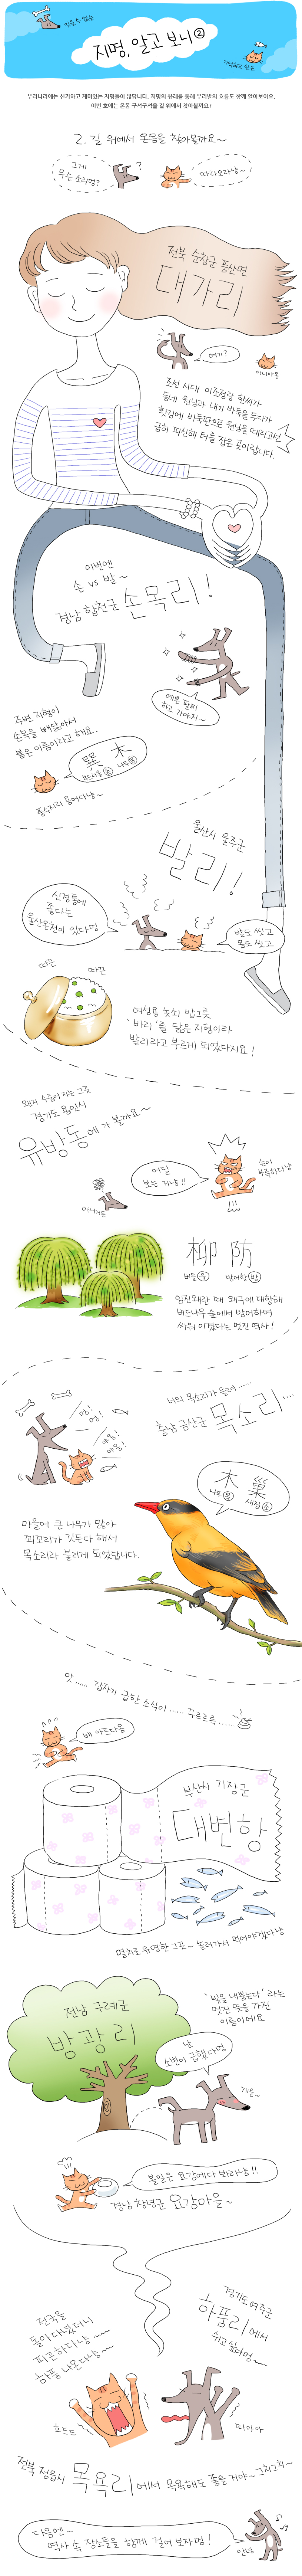 믿을 수 없는
지명, 알고 보니②
기억하고 싶은
우리나라에는 신기하고 재미있는 지명들이 많답니다. 지명의 유래를 통해 우리말의 흐름도 함께 알아보아요.
이번 호에는 온몸 구석구석을 길 위에서 찾아볼까요?
2. 길 위에서 온몸을 찾아볼까요~
그게
무슨 소리멍?
따라오라냥~!
전북 순창군 풍산면
대가리
여기?
아니야옹
조선 시대 이조정랑 한씨가
동네 원님과 내기 바둑을 두다가
홧김에 바둑판으로 원님을 때리고선
급히 피신해 터를 잡은 곳이랍니다.
이번엔
손 vs 발~
경남 합천군 손목리!
예쁜 팔찌
하고 가야지~
주변 지형이
손목을 빼닮아서
붙은 이름이라고 해요.
巽 木
부드러울 손 나무 목
울산시 울주군
발리!
신경통에
좋다는
울산온천이 있다멍
발도 씻고
몸도 씻고
따끈
따끈
여성용 놋쇠 밥그릇
'바리'를 닮은 지형이라
발리라고 부르게 되었다지요!
왠지 수줍어지는 그곳
경기도 용인시
유방동에 가 볼까요~
어딜
보는 거냥!!
손이
부족하다냥
아니거든
柳 防
버들 유 막아할 방
임진왜란 때 왜구에 대항해
버드나무 숲에서 방어하며
싸워 이겼다는 멋진 역사!
너의 목소리가 들려……
충남 금산군 목소리…
멍!
멍!
야옹!
야옹!
木 巢
나무 목 새집 소
마을에 큰 나무가 많아
꾀꼬리가 깃든다 해서
목소리라 불리게 되었답니다.
앗…… 갑자기 급한 소식이…… 꾸르르륵……
배 아프다옹
부산시 기장군
대변항
멸치로 유명한 그곳~ 놀러가서 먹어야겠다냥
전남 구례군
방광리
'빛을 내뿜는다'라는
멋진 뜻을 가진
이름이에요
난
소변이 급했다멍
볼일은 요강에다 봐라냥!!
경남 창녕군 요강마을~
전국을
돌아다녔더니
피곤하다냥~
하품 나온다냥~
경기도 여주군
하품리에서
쉬고 싶다멍~
흐트트
따아아
전북 정읍시 목욕리에서 목욕해도 좋을 거야~ 그치그치~
다음엔~
역사 속 장소들을 함께 걸어 보자멍!
안녕